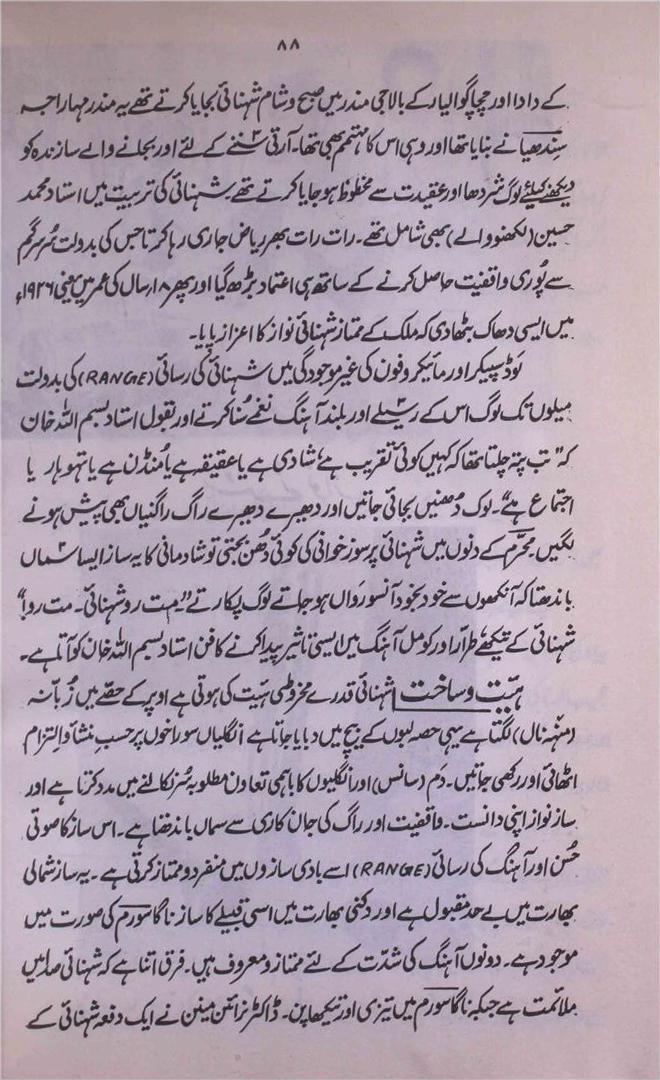 ۸۸
کے دادا اور چچا گوالیار کے بالاجی مندر میں صبح و شام شہنائی بجایا کرتے تھے یہ مندر مہاراجہ
سِندھیا نے بنایا تھا اور وہی اس کا مہتمم بھی تھا۔ آرتی سُننے کے لئے اور بجانے والے سازندہ کو
دیکھنے کیلئے لوگ شردھا اور عقیدت سے محظوظ ہو جایا کرتے تھے۔ شہنائی کی تربیت میں استاد محمد
حسین (لکھنؤ والے) بھی شامل تھے۔ رات رات بھر ریاض جاری رہا کرتا جس کی بدولت سُر سرگم
سے پُوری واقفیت حاصل کرنے کے ساتھ ہی اعتماد بڑھ گیا اور پھر ۱۸ سال کی عمر میں یعنی ۱۹۲۶ء
میں ایسی دھاک بٹھا دی کہ ملک کے ممتاز شہنائی نواز کا اعزاز پایا۔
لَوڈ سپیکر اور مائیکروفون کی غیر موجودگی میں شہنائی کی رسائی (RANGE) کی بدولت
میلوں تک لوگ اس کے رسیلے اور بلند آہنگ نغمے سُنا کرتے اور بقول استاد بسم اللہ خان
کہ "تب پتہ چلتا تھا کہ کہیں کوئی تقریب ہے، شادی ہے یا عقیقہ ہے یا مُنڈن ہے یا تہوہار یا
اجتماع ہے"۔ لوک دُھنیں بجائی جاتیں اور دھیرے دھیرے راگ راگنیاں بھی پیش ہونے
لگیں۔ محرّم کے دنوں میں شہنائی پر سوز خوانی کی کوئی دُھن بجتی تو شادمانی کا یہ ساز ایسا سماں
باندھتا کہ آنکھوں سے خود بخود آنسو رَواں ہو جاتے لوگ پکارتے "مت رو شہنائی۔ مت رو!"
شہنائی کے تیکھے طرّار اور کومل آہنگ میں ایسی تاثیر پیدا کرنے کا فن استاد بسم اللہ خان کو آتا ہے۔
ہیّت و ساخت شہنائی قدرے مخروطی ہیّت کی ہوتی ہے اوپر کے حصّے میں زُبانہ
(منہہ نال) لگتا ہے یہی حصہ لبوں کے بیچ میں دبایا جاتا ہے انگلیاں سوراخوں پر حسبِ منشا و التزام
اٹھائی اور رکھی جاتیں۔ دَم (سانس) اور انگلیوں کا باہمی تعاون مطلوبہ سُر نکالنے میں مدد کرتا ہے اور
ساز نواز اپنی دانست۔ واقفیت اور راگ کی جان کاری سے سماں باندھتا ہے۔ اس ساز کا صوتی
حُسن اور آہنگ کی رسائی (RANGE) اسے بادی سازوں میں منفرد و ممتاز کرتی ہے۔ یہ ساز شمالی
بھارت میں بے حد مقبول ہے اور دکنی بھارت میں اسی قبیلے کا ساز ناگا سورم کی صورت میں
موجود ہے۔ دونوں آہنگ کی شدّت کے لئے ممتاز و معروف ہیں۔ فرق اتنا ہے کہ شہنائی صدا میں
ملائمت ہے جبکہ ناگا سورم میں تیزی اور تیکھا پن۔ ڈاکٹر نرائن مینن نے ایک دفعہ شہنائی کے